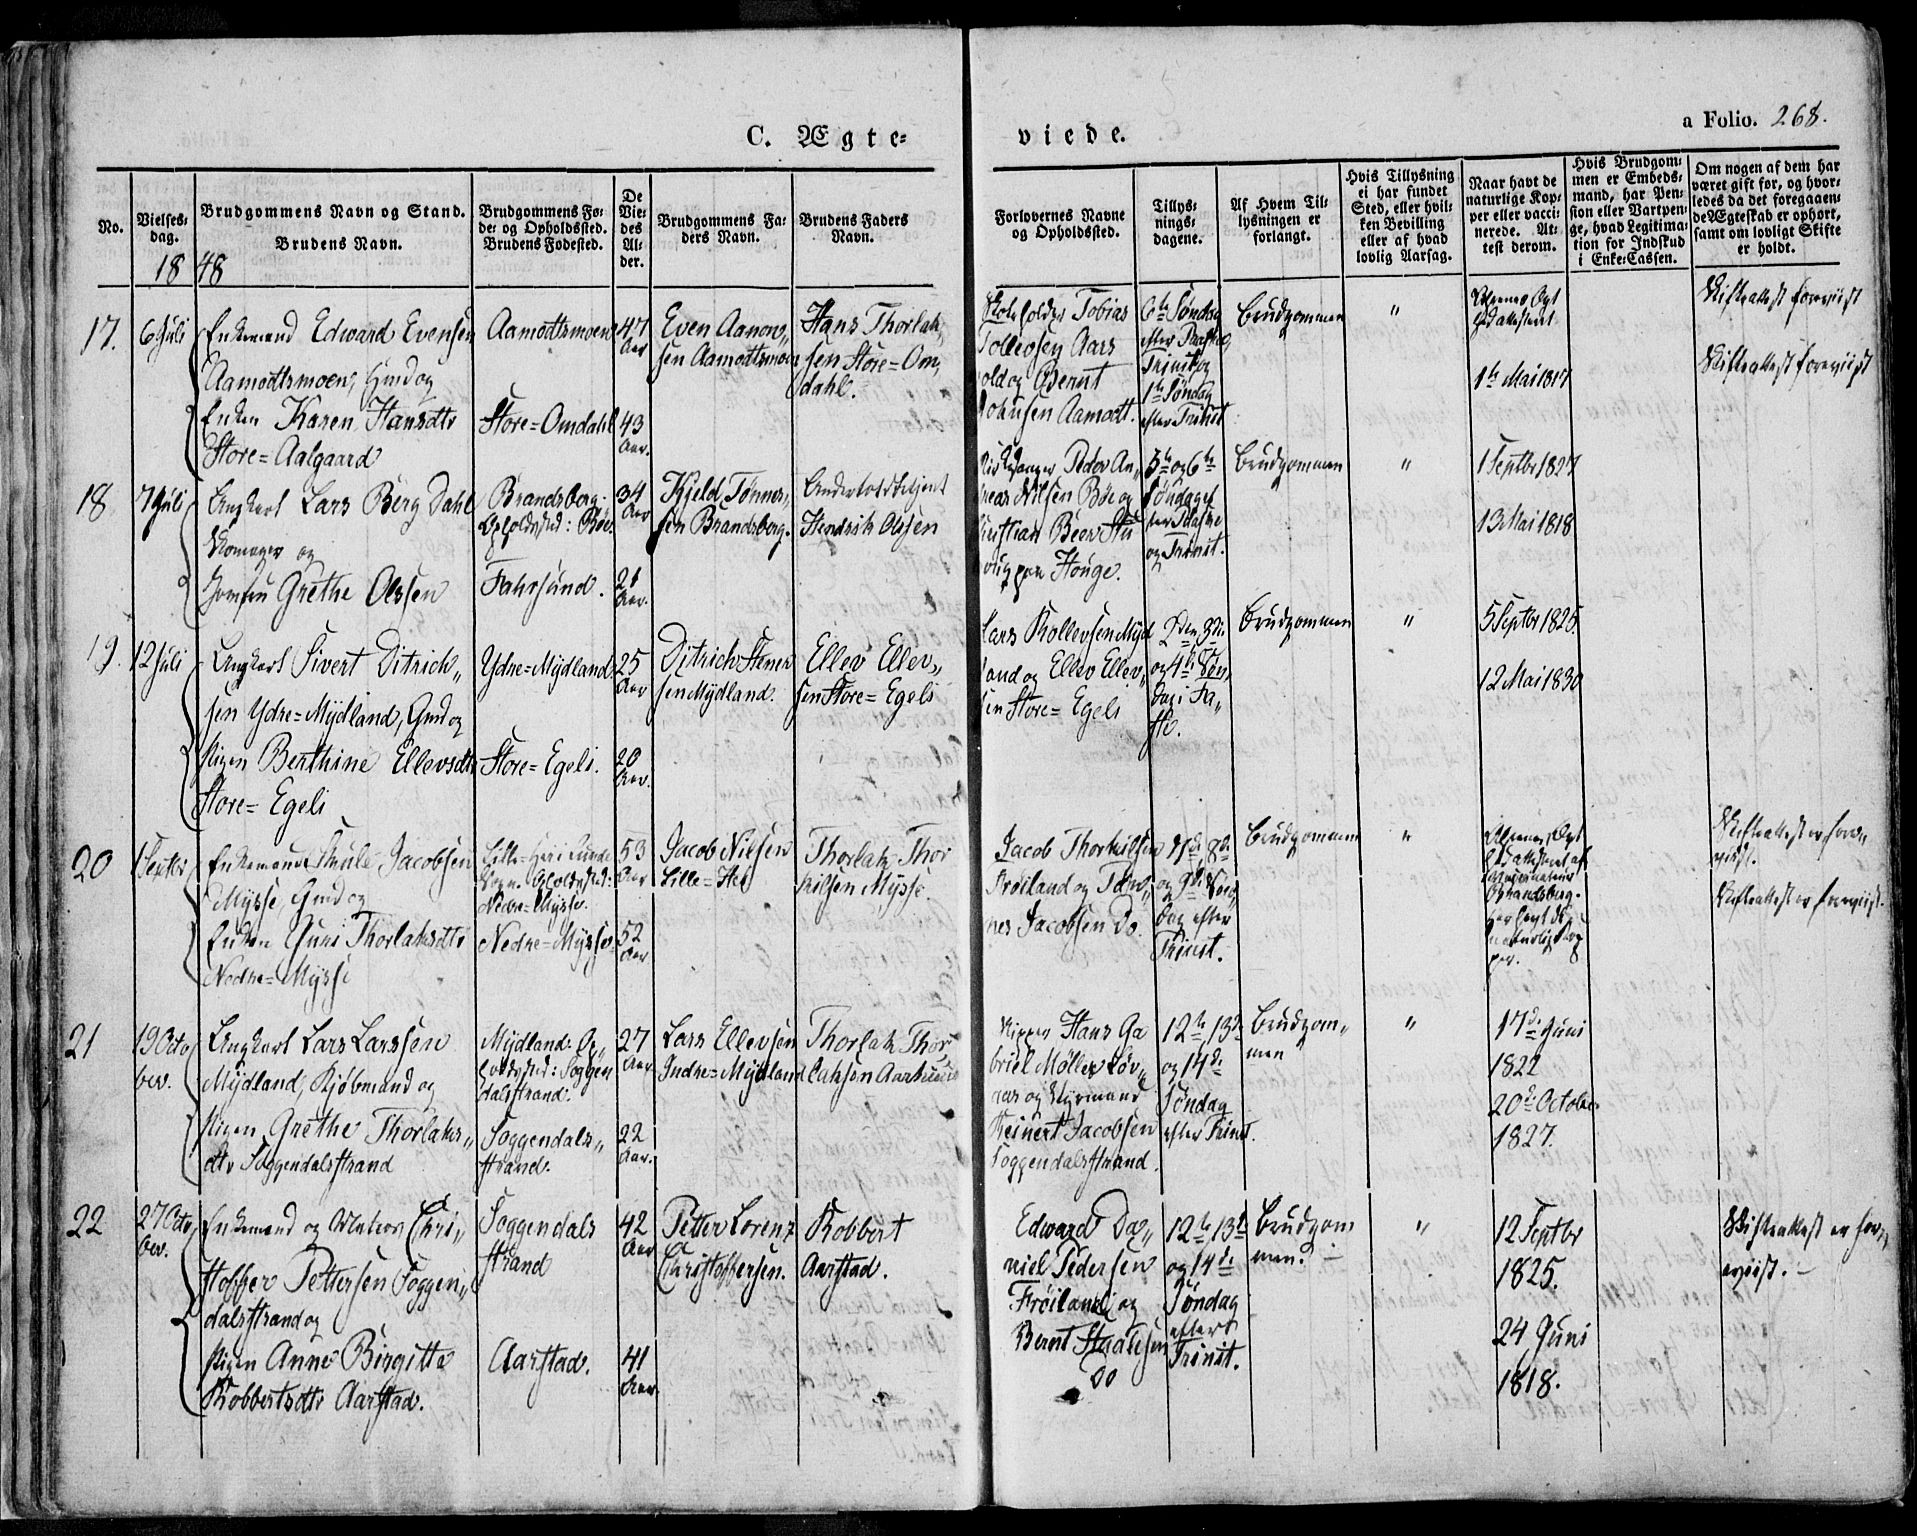 C. Ægte=
viede.
a Folio. 268.
No.
Vielses-
dag.
Brudgommens Navn og Stand.
Brudens Navn.
Brudgommens Fø-
de- og Opholdssted.
Brudens Fødested.
De
Vie-
des
Al-
der.
Brudgommens Fa-
ders Navn.
Brudens Faders
Navn.
Forlovernes Navne
og Opholdssted.
Tillys-
nings-
dagene.
Af Hvem Til-
lysningen er
forlangt.
Hvis Tillysning
ei har fundet
Sted, eller hvil-
ken Bevilling
eller af hvad
lovlig Aarsag.
Naar havt de
naturlige Kop-
per eller vacci-
nerede. At-
test derom.
Hvis Brudgom-
men er Embeds-
mand, har Pen-
sion eller Vartpen-
ge, hvad Legitima-
tion for Indskud
i Enke-Cassen.
Om nogen af dem har
været gift før, og hvor-
ledes da det foregaaen-
de Ægteskab er ophørt,
samt om lovligt Skifte
er holdt.
1848
17.
6 Juli
Enkemand Edward Evensen
Aamodtsmoen, Gmd og
Enken Karen Hansdtr
Store=Aalgaard
Aamodtsmoen
Store=Omdahl
47
Aar
43
Aar.
Even Aanon„
sen Aamodtsmoen
Hans Thorlak„
sen Store=Om„
dahl.
Skoleholder Tobias
Tollevsen Aars
vold og Bernt
Johnsen Aamodt.
6te Søndag
efter Paaske,
Trinit. og
1te Søndag
efter Trinit.
Brudgommen
„
1te Mai 1817
Skifteattest foreviist
Skifteattest foreviist
18
7 Juli
Ungkarl Lars Berg Dahl
Skomager og
Jomfru Grethe Olssen
Brandsberg.
Opholdssted: Bøe.
Fahrsund.
34
Aar
21
Aar.
Kjeld Tønnes„
sen Brandsberg.
Underlods
Hendrik Olssen
Kirkesanger Peder An„
dreas Nilsen Bøe og
Christian Beer Stu
Houge.
5te og 6te
Søndag ef
ter Paaske
og Trinit.
Brudgommen
„
1 Septbr 1827
13 Mai 1818
19.
12 Juli
Ungkarl Sivert Ditrich„
sen Ydre=Mydland, Gmd og
Pigen Berthine Ellevsdtr
Store=Egeli
Ydre=Mydland
Store=Egeli.
25
Aar
20
Aar.
Ditrich Stener
sen Mydland.
Ellev Ellev„
sen Store=Egeli
Lars Rollevsen Myd
land og Ellev Ellev„
sen Store=Egeli
2den, 3die
og 4de Søn„
dag i Fa„
ste.
Brudgommen
„
5 Septbr 1825.
12 Mai 1830
20
1 Septbr
Enkemand Skule Jacobsen
Mysse, Gmd og
Enken Guri Thorlaksdtr
Nedre=Mysse
Lille=Hei i Lunde
Sogn. Opholdssted:
Nedre=Mysse.
Nedre=Mysse.
53
Aar
52
Aar
Jacob Nilsen
Lille=Hei
Thorlak Thor
kilsen Mysse.
Jacob Thorkilsen
Frøiland og Tøn„
nes Jacobsen Do.
7de, 8de
og 9de Søn„
dag efter
Trinit.
Brudgommen
„
Attest af
Vaccinateur
Brandsberg.
Har havt de
naturlige Kop
per.
Skifteattest er fore„
viist.
Skifteattest er foreviist.
21
19 Octo
ber.
Ungkarl Lars Larssen
Mydland, Kjøbmand og
Pigen Grethe Thorlaks„
dtr Soggendalsstrand
Mydland. Op„
holdssted: Soggen
dalsstrand.
Soggendals„
strand.
27
Aar.
22
Aar.
Lars Ellevsen
Indre=Mydland
Thorlak Thor„
laksen Aarhuus
Skipper Hans Ga
briel Møller Løv„
aas og Styrmand
Reinert Jacobsen
Soggendalsstrand.
12te, 13de
og 14de
Søndag
efter Trinit.
Brudgom„
men
„
17de Juni
1822
20de October
1827.
22
27 Octo„
ber.
Enkemand og Matros Chri„
stoffer Pettersen Soggen„
dalsstrand og
Pigen Anne Birgitte
Robbertsdtr Aarstad.
Soggendals
strand
Aarstad.
42
Aar
41
Aar
Petter Lorenz
Christoffersen.
Robbert
Aarstad.
Edward Da„
niel Pedersen
Frøiland og
Bernt Staalesen
Do
12te, 13de
og 14de
Søndag
efter
Trinit.
Brudgom
men.
„
12 Septbr
1825.
24 Juni
1818.
Skifteattest er fore„
viist.